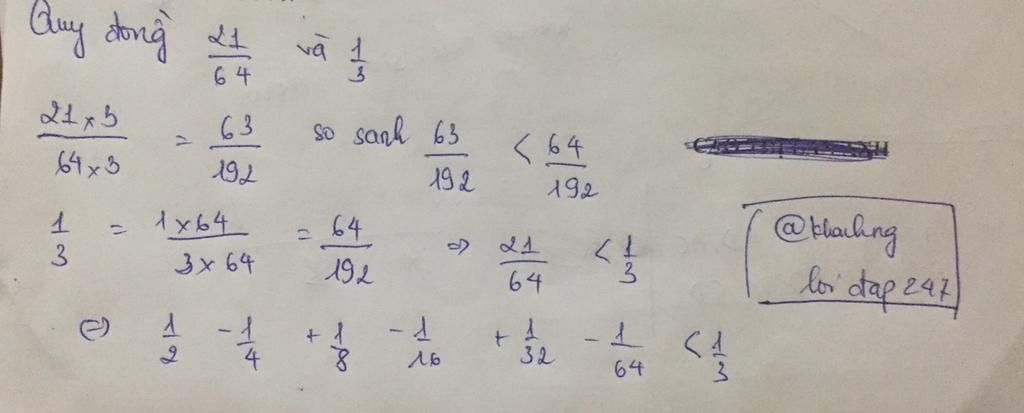 Quy đồng 21/64 và 1/3
21 x 3 / 64 x 3 = 63/192 so sanh 63/192 < 64/192
1/3 = 1 x 64 / 3 x 64 = 64/192 => 21/64 < 1/3
@khailing
loi dap 247
=> 1/2 - 1/4 + 1/8 - 1/16 + 1/32 - 1/64 < 1/3